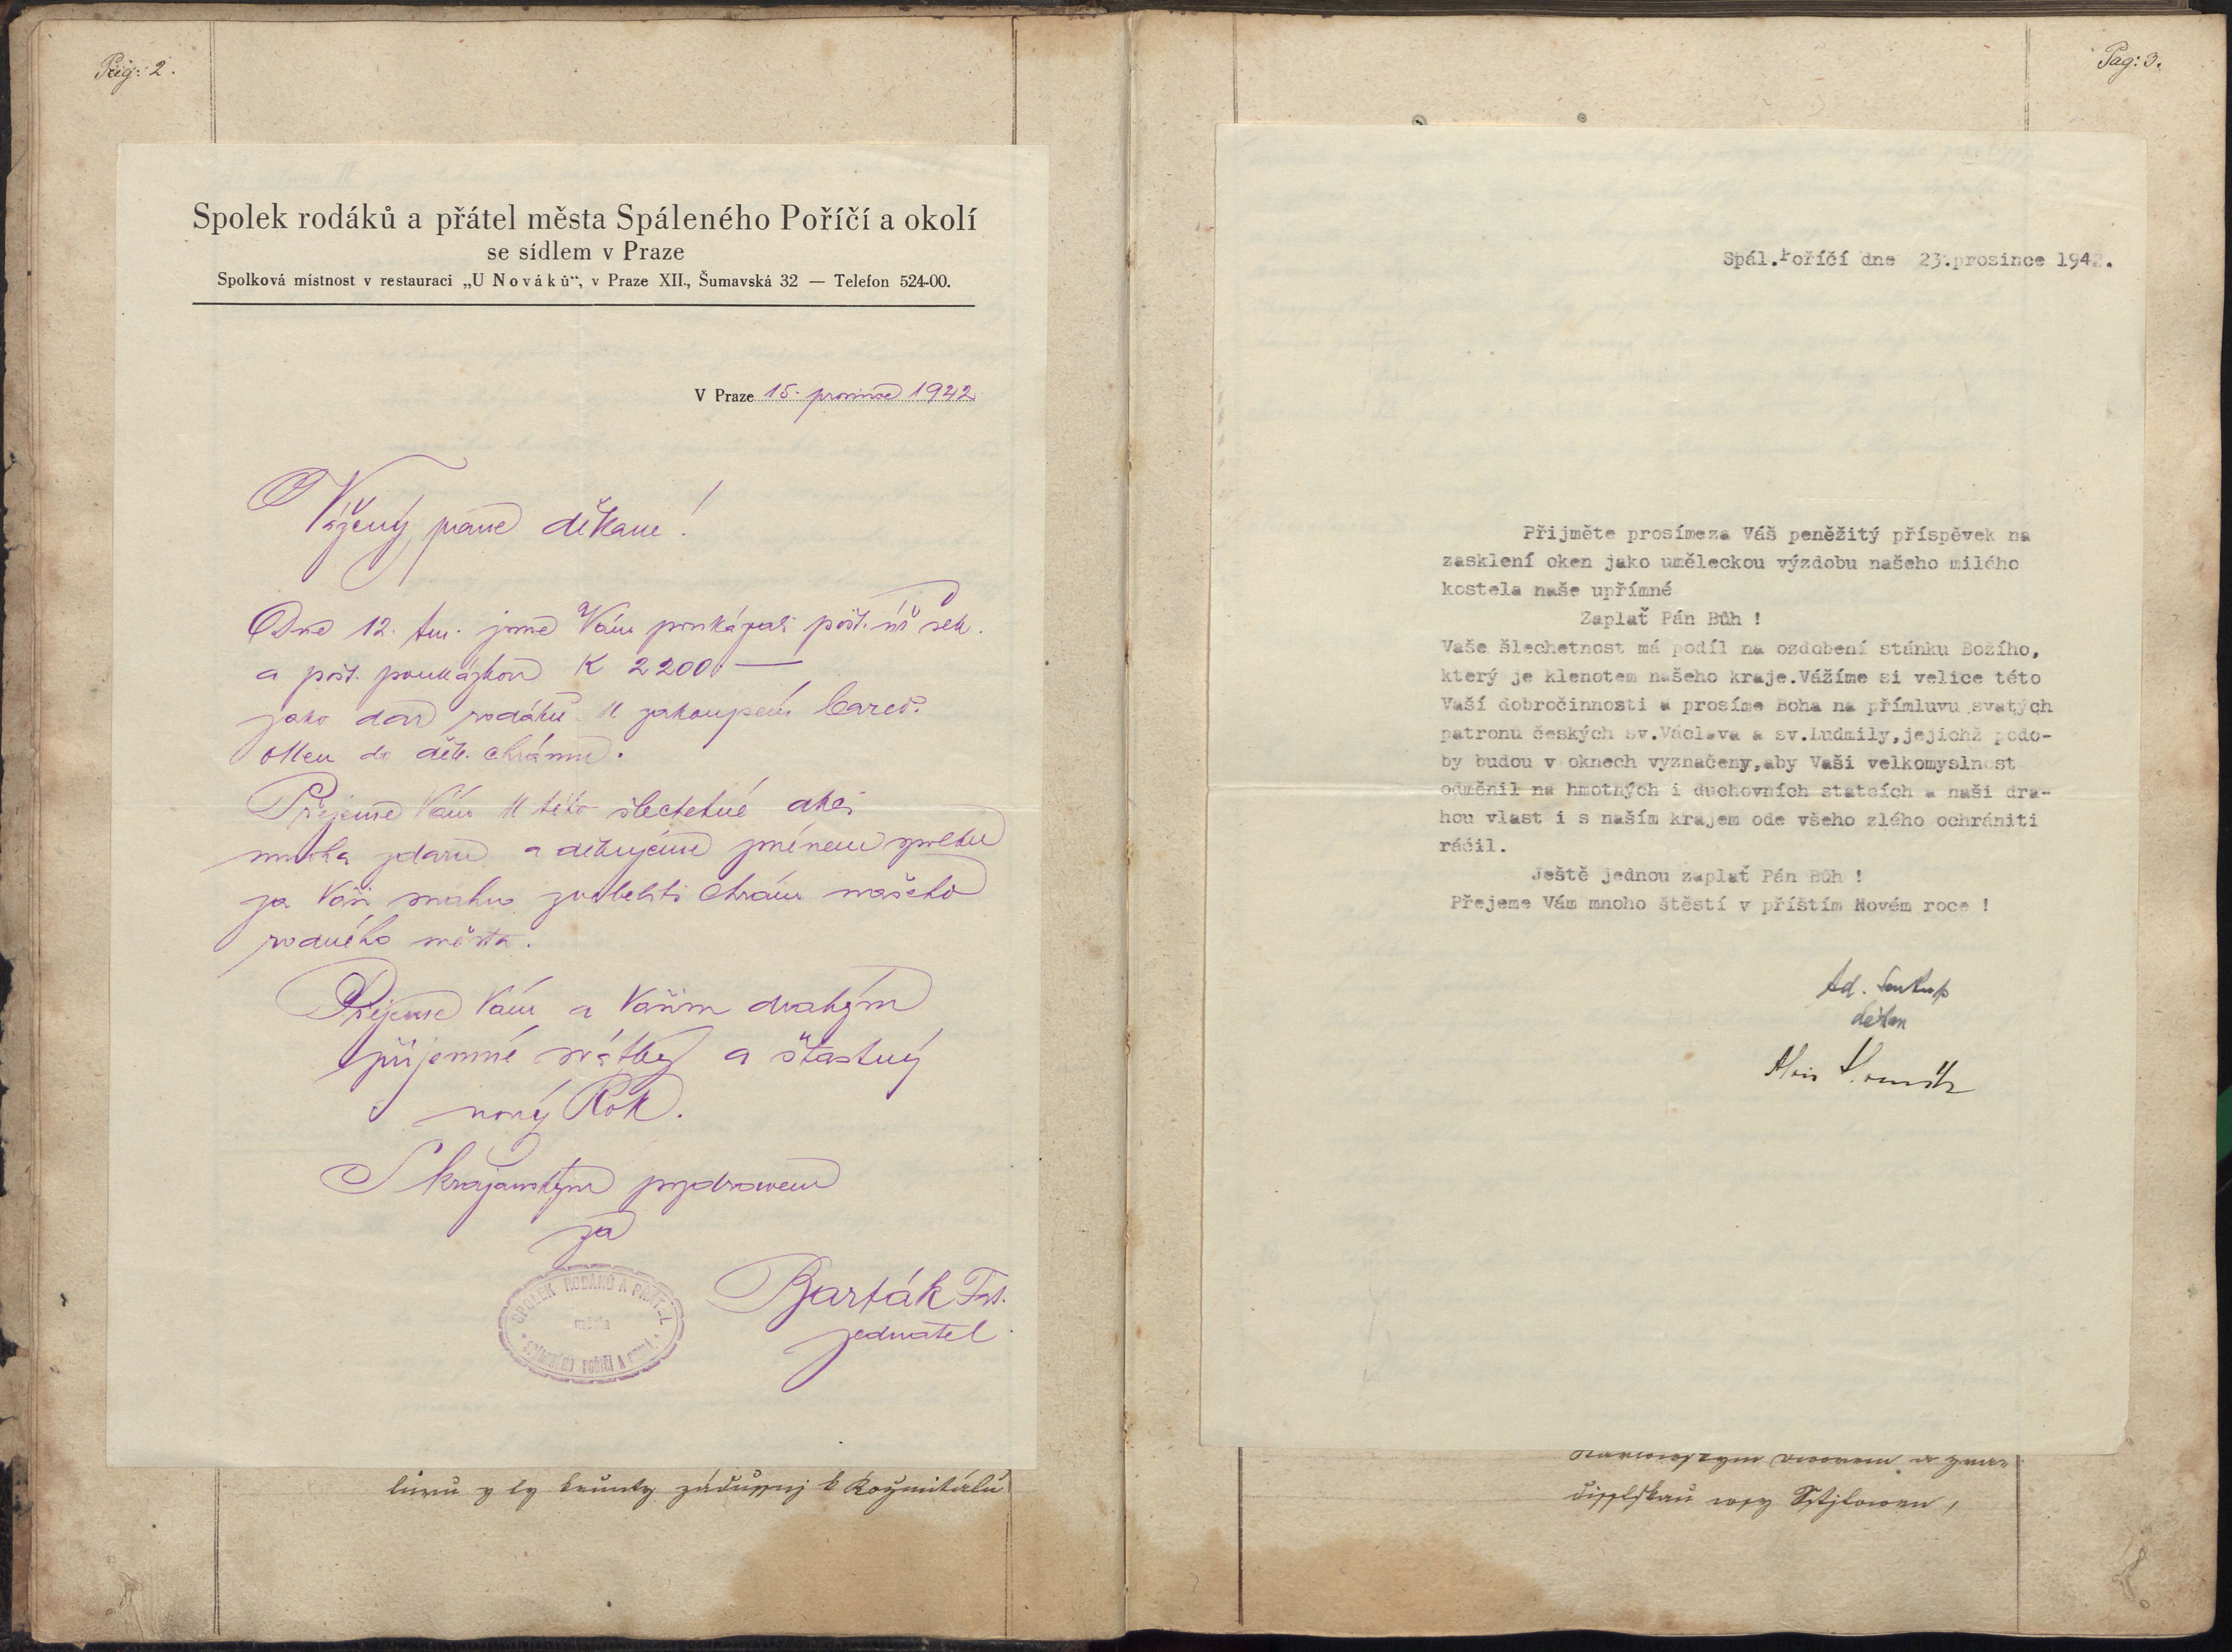 Pag: 2.
Spolek rodáků a přátel města Spáleného Poříčí a okolí
se sídlem v Praze
Spolková místnost v restauraci „U Nováků“, v Praze XII., Šumavská 32 — Telefon 524-00.
V Praze 15. prosince 1942
Vážený pane děkane!
Dne 12. tm. jsme Vám poukázali pošt. šek.
a pošt. poukázkou K 2200 —
jako dar rodáků k zakoupení barev.
oken do děk. chrámu.
Přejeme Vám k této šlechetné akci
mnoha zdaru a děkujeme jménem spolku
za Vaši snahu zvelebiti chrám našeho
rodného města.
Přejeme Vám a Vašim drahým
příjemné svátky a šťastný
nový Rok.
S krajanským pozdravem
za
SPOLEK RODÁKŮ A PŘÁTEL
města
POŘÍČÍ A
Barták Frt.
jednatel.
k
Pag: 3.
Spál.Poříčí dne 23.prosince 1942.
Přijměte prosímeza Váš peněžitý příspěvek na
zasklení oken jako uměleckou výzdobu našeho milého
kostela naše upřímné
Zaplať Pán Bůh !
Vaše šlechetnost má podíl na ozdobení stánku Božího,
který je klenotem našeho kraje.Vážíme si velice této
Vaší dobročinnosti a prosíme Boha na přímluvu svatých
patronů českých sv.Václava a sv.Ludmily,jejichž podo-
by budou v oknech vyznačeny,aby Vaši velkomyslnost
odměnil na hmotných i duchovních statcích a naši dra-
hou vlast i s naším krajem ode všeho zlého ochrániti
ráčil.
Ještě jednou zaplať Pán Bůh !
Přejeme Vám mnoho štěstí v příštím Novém roce !
Ad. Soukup
děkan
Alois